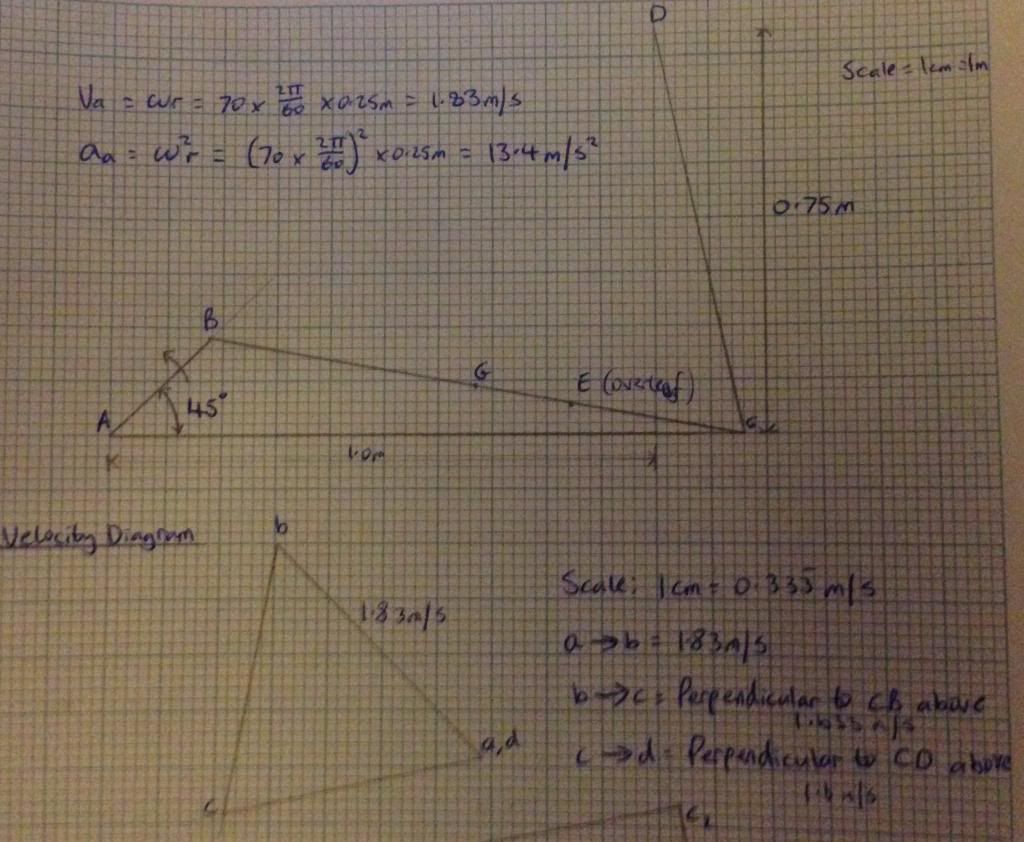 D
Scale = 1cm = 1m
Va = ωr = 70 × 2π/60 × 0.25m = 1.83m/s
aa = ω²r = (70 × 2π/60)² × 0.25m = 13.4 m/s²
0.75m
B
G
E (overleaf)
A
45°
C
1.0m
Velocity Diagram
b
Scale: 1cm = 0.335 m/s
1.83m/s
a → b = 1.83m/s
b → c = Perpendicular to CB above
a,d
c → d = Perpendicular to CD above
c
c,